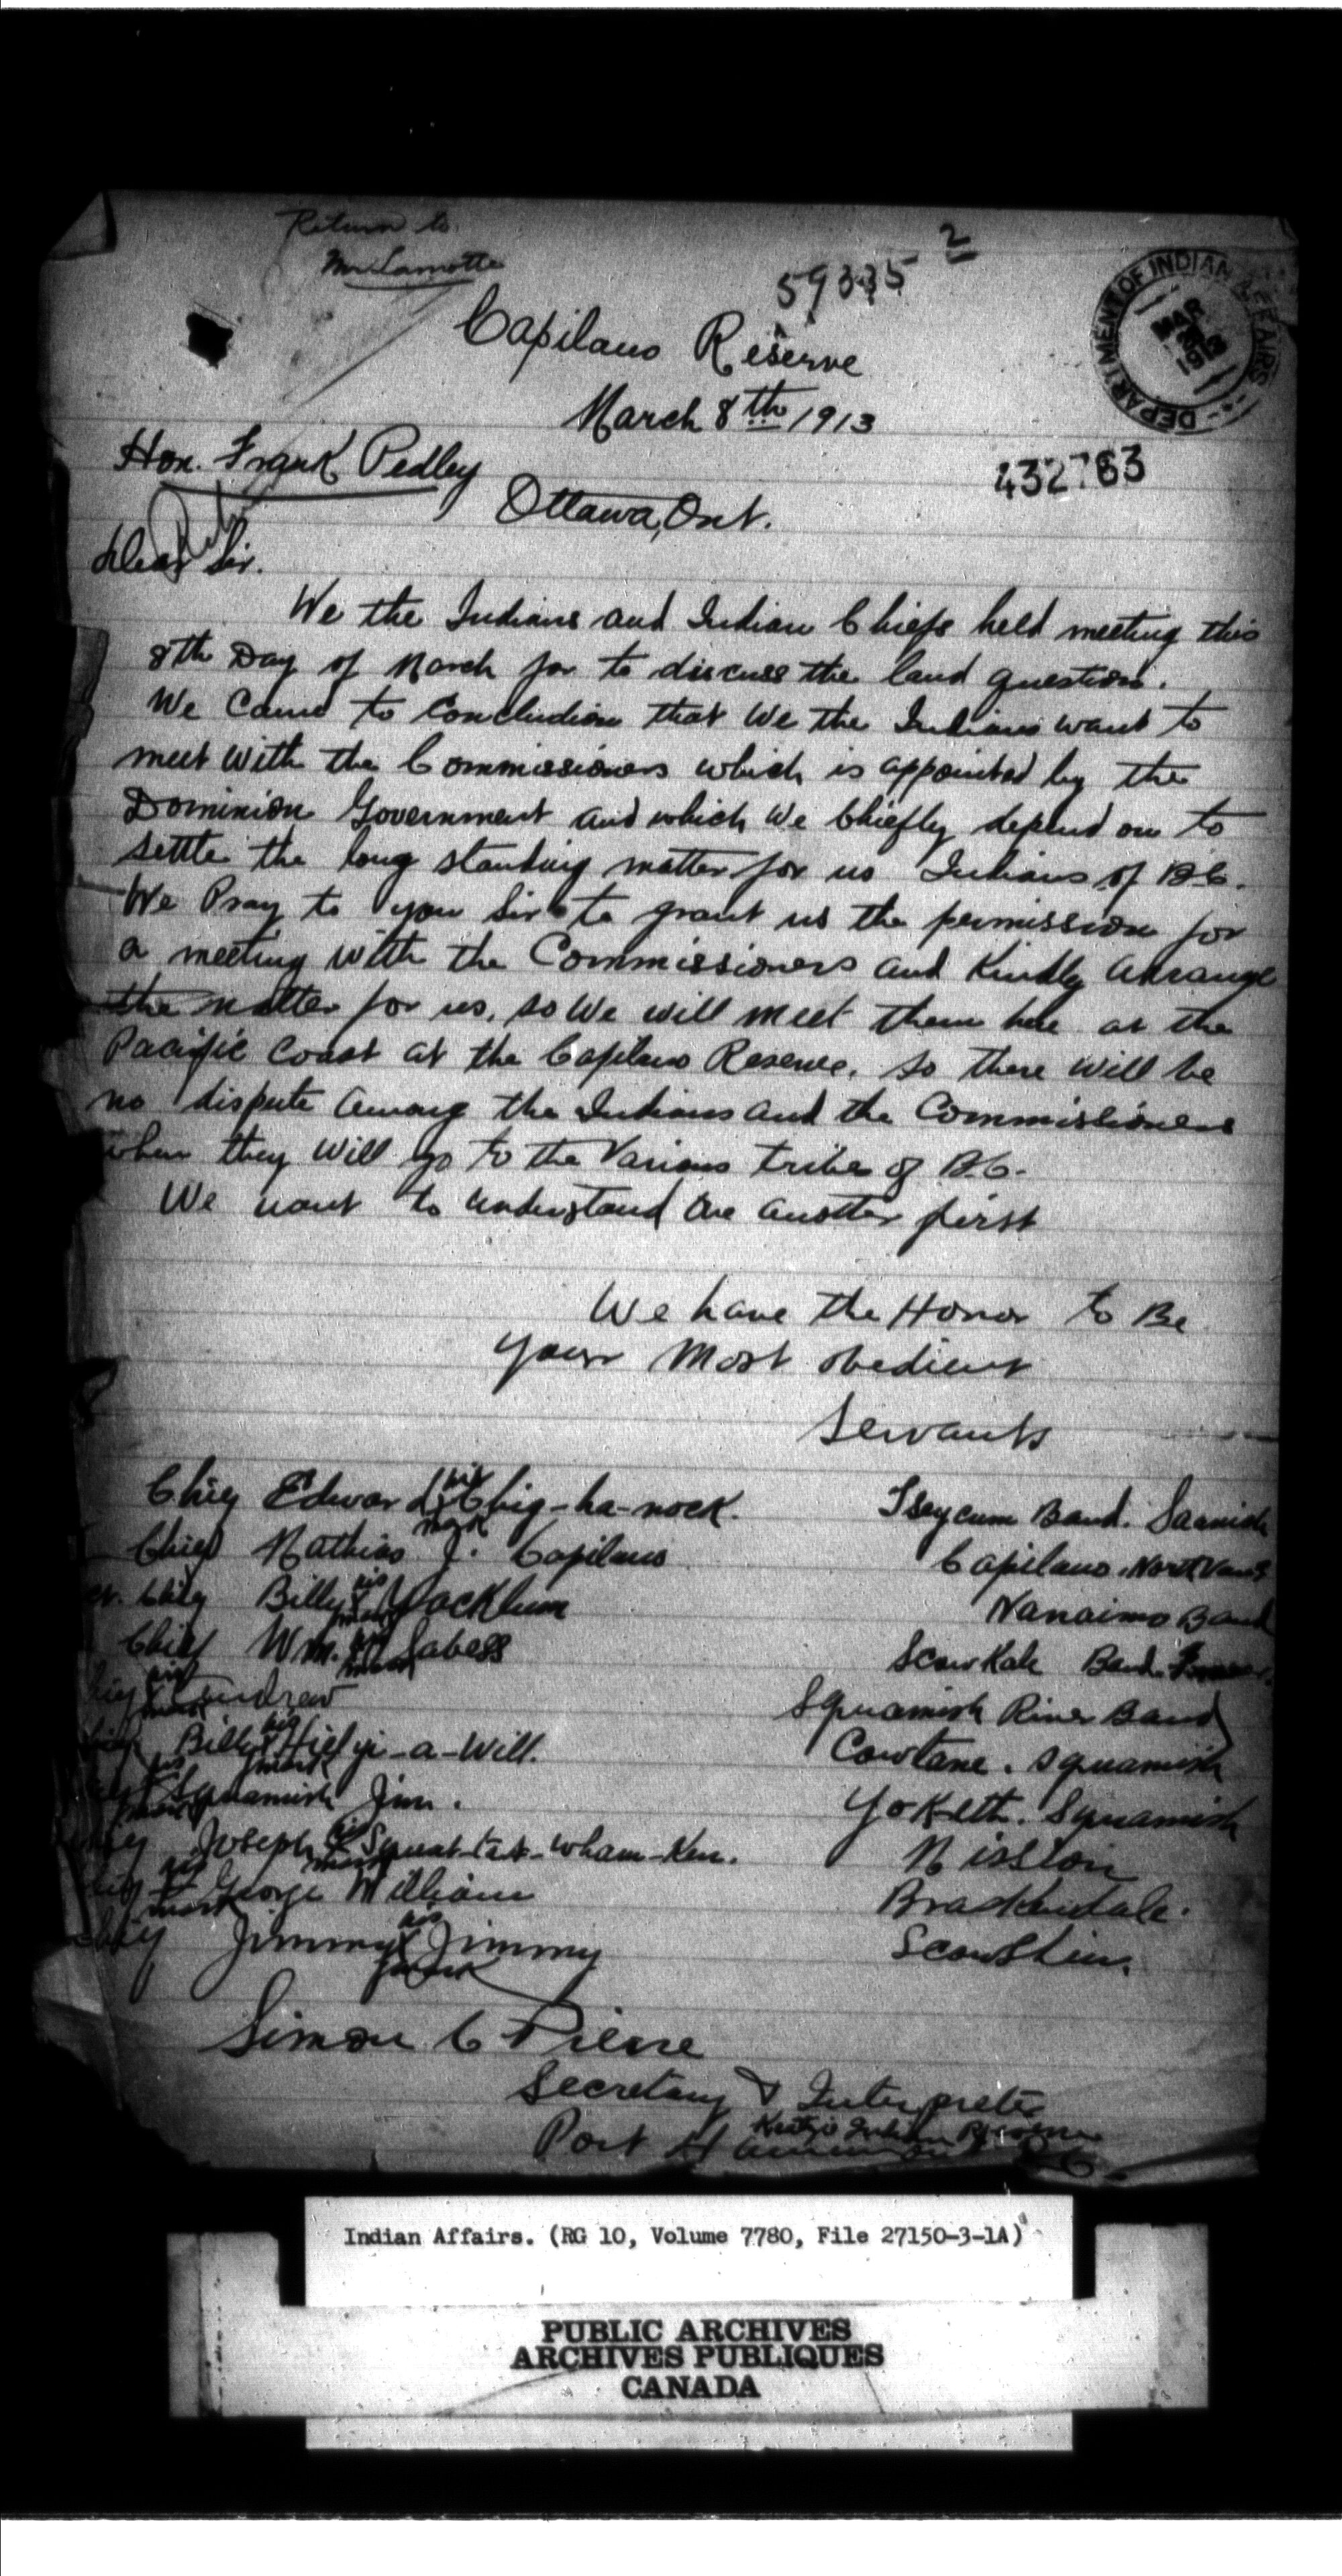 Return to
Mr Lamotte
2
59335
DEPARTMENT OF INDIAN AFFAIRS
MAR
1913
Capilano Reserve
March 8th 1913
432763
Hon. Frank Pedley
Ottawa, Ont.
Dear Sir.
We the Indians and Indian Chiefs held meeting this
8th Day of March for to discuss the land question.
We Came to Concludion that We the Indians want to
meet with the Commissioners which is appointed by the
Dominion Government and which we Chiefly depend on to
settle the long standing matter for us Indians of B.C.
We Pray to you Sir to grant us the permission for
a meeting with the Commissioners and Kindly arrange
the matter for us, so We will meet them here at the
Pacific Coast at the Capilano Reserve. so there will be
no dispute among the Indians and the Commissioners
when they will go to the Various tribe of B.C.
We want to understand one another first
We have the Honor to Be
your Most obedient
Servants
Chief Edward his X mark Chig-ha-nock. Tseycum Band. Saanich
Chief Mathias J. Capilano Capilano. North Van
Chief Billy his X mark Nanaimo Band
Chief Wm. his X mark Scowkale Band.
his X mark Andrew Squamish River Band
Billy his X mark Cowtane. Squamish
his X mark Squamish Jim. Yokelth. Squamish
Joseph his X mark Mission
his X mark George William Brackendale.
Chief Jimmy his X mark Jimmy
Simon C Pierre
Secretary & Interpreter
Katzie Indian Reserve
Port Hammond B.C.
Indian Affairs. (RG 10, Volume 7780, File 27150-3-1A)
PUBLIC ARCHIVES
ARCHIVES PUBLIQUES
CANADA